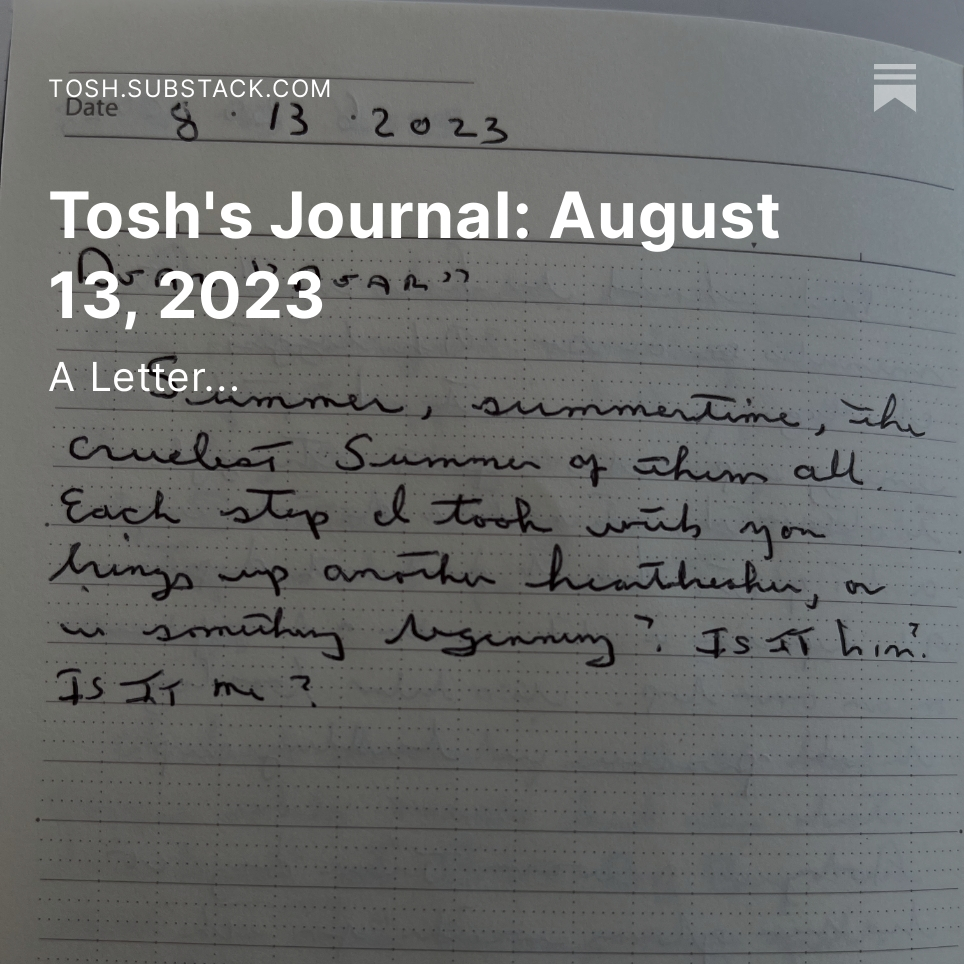 TOSH.SUBSTACK.COM
Date 8 · 13 · 2023
Tosh's Journal: August
13, 2023
Dear "Dear"
A Letter...
Summer, summertime, the
cruelest Summer of them all.
Each step I took with you
brings up another heartbreaker, or
is something beginning? Is it him?
Is it me?